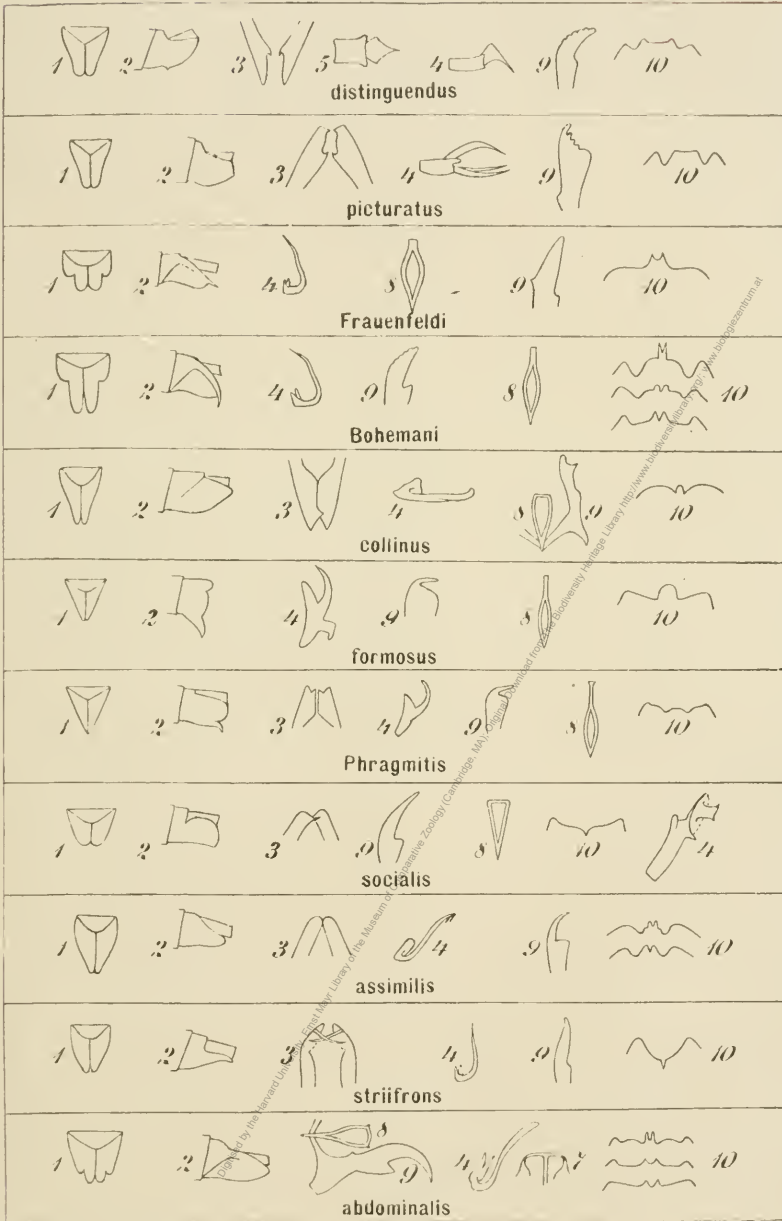 1 2 3 5 4 9 10
distinguendus
1 2 3 4 9 10
picturatus
1 2 4 8 9 10
Frauenfeldi
1 2 4 9 8 10
Bohemani
1 2 3 4 8 9 10
collinus
1 2 4 9 8 10
formosus
1 2 3 4 9 8 10
Phragmitis
1 2 3 9 8 10 4
socialis
1 2 3 4 9 10
assimilis
1 2 3 4 9 10
striifrons
1 2 8 9 4 7 10
abdominalis
Digitised by the Harvard University, Ernst Mayr Library of the Museum of Comparative Zoology (Cambridge, MA); Original Download from The Biodiversity Heritage Library http://www.biodiversitylibrary.org/; www.biologiezentrum.at